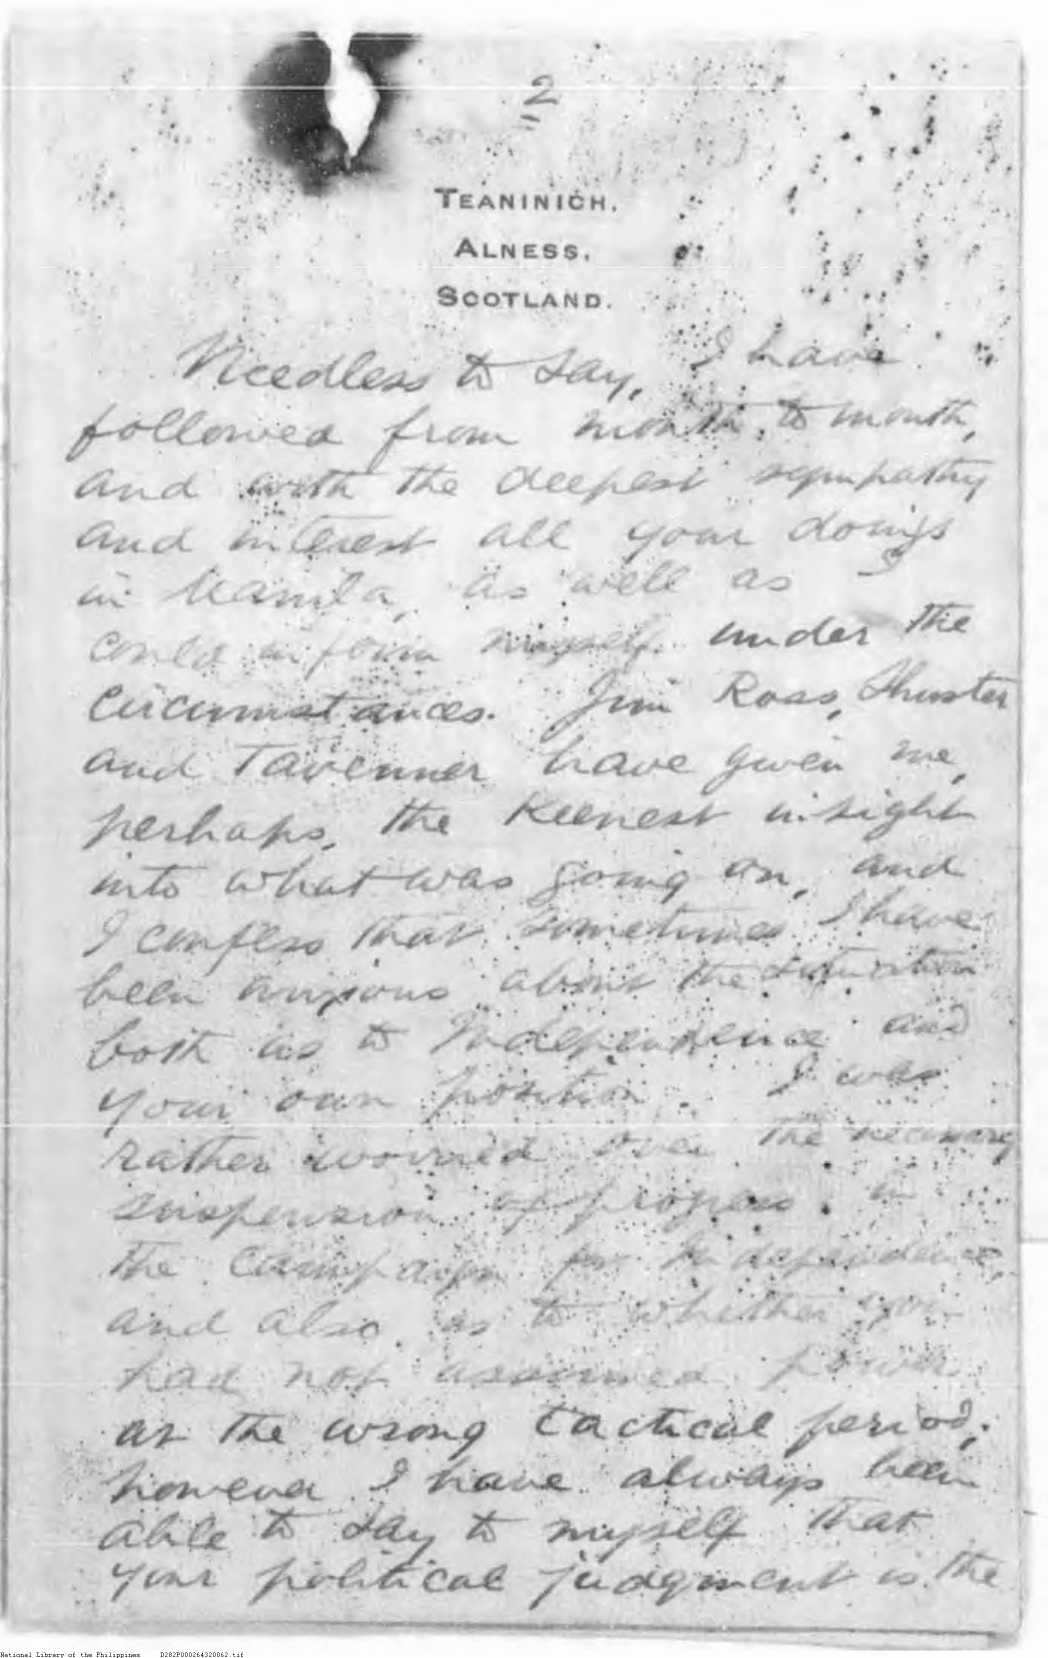 2
TEANINICH.
ALNESS.
SCOTLAND.
Needless to say, I have
followed from month to month,
and with the deepest sympathy
and interest all your doings
in Manila, as well as I
could inform myself under the
circumstances. Jim Ross, Shuster
and Tavenner have given me,
perhaps, the keenest insight
into what was going on, and
I confess that sometimes I have
been anxious about the situation
both as to Independence and
your own position. I was
rather worried over the necessary
suspension of progress in
the campaign for Independence,
and also as to whether you
had not assumed power
at the wrong tactical period;
however I have always been
able to say to myself that
your political judgment is the
National Library of the Philippines D282P000264320062.tif